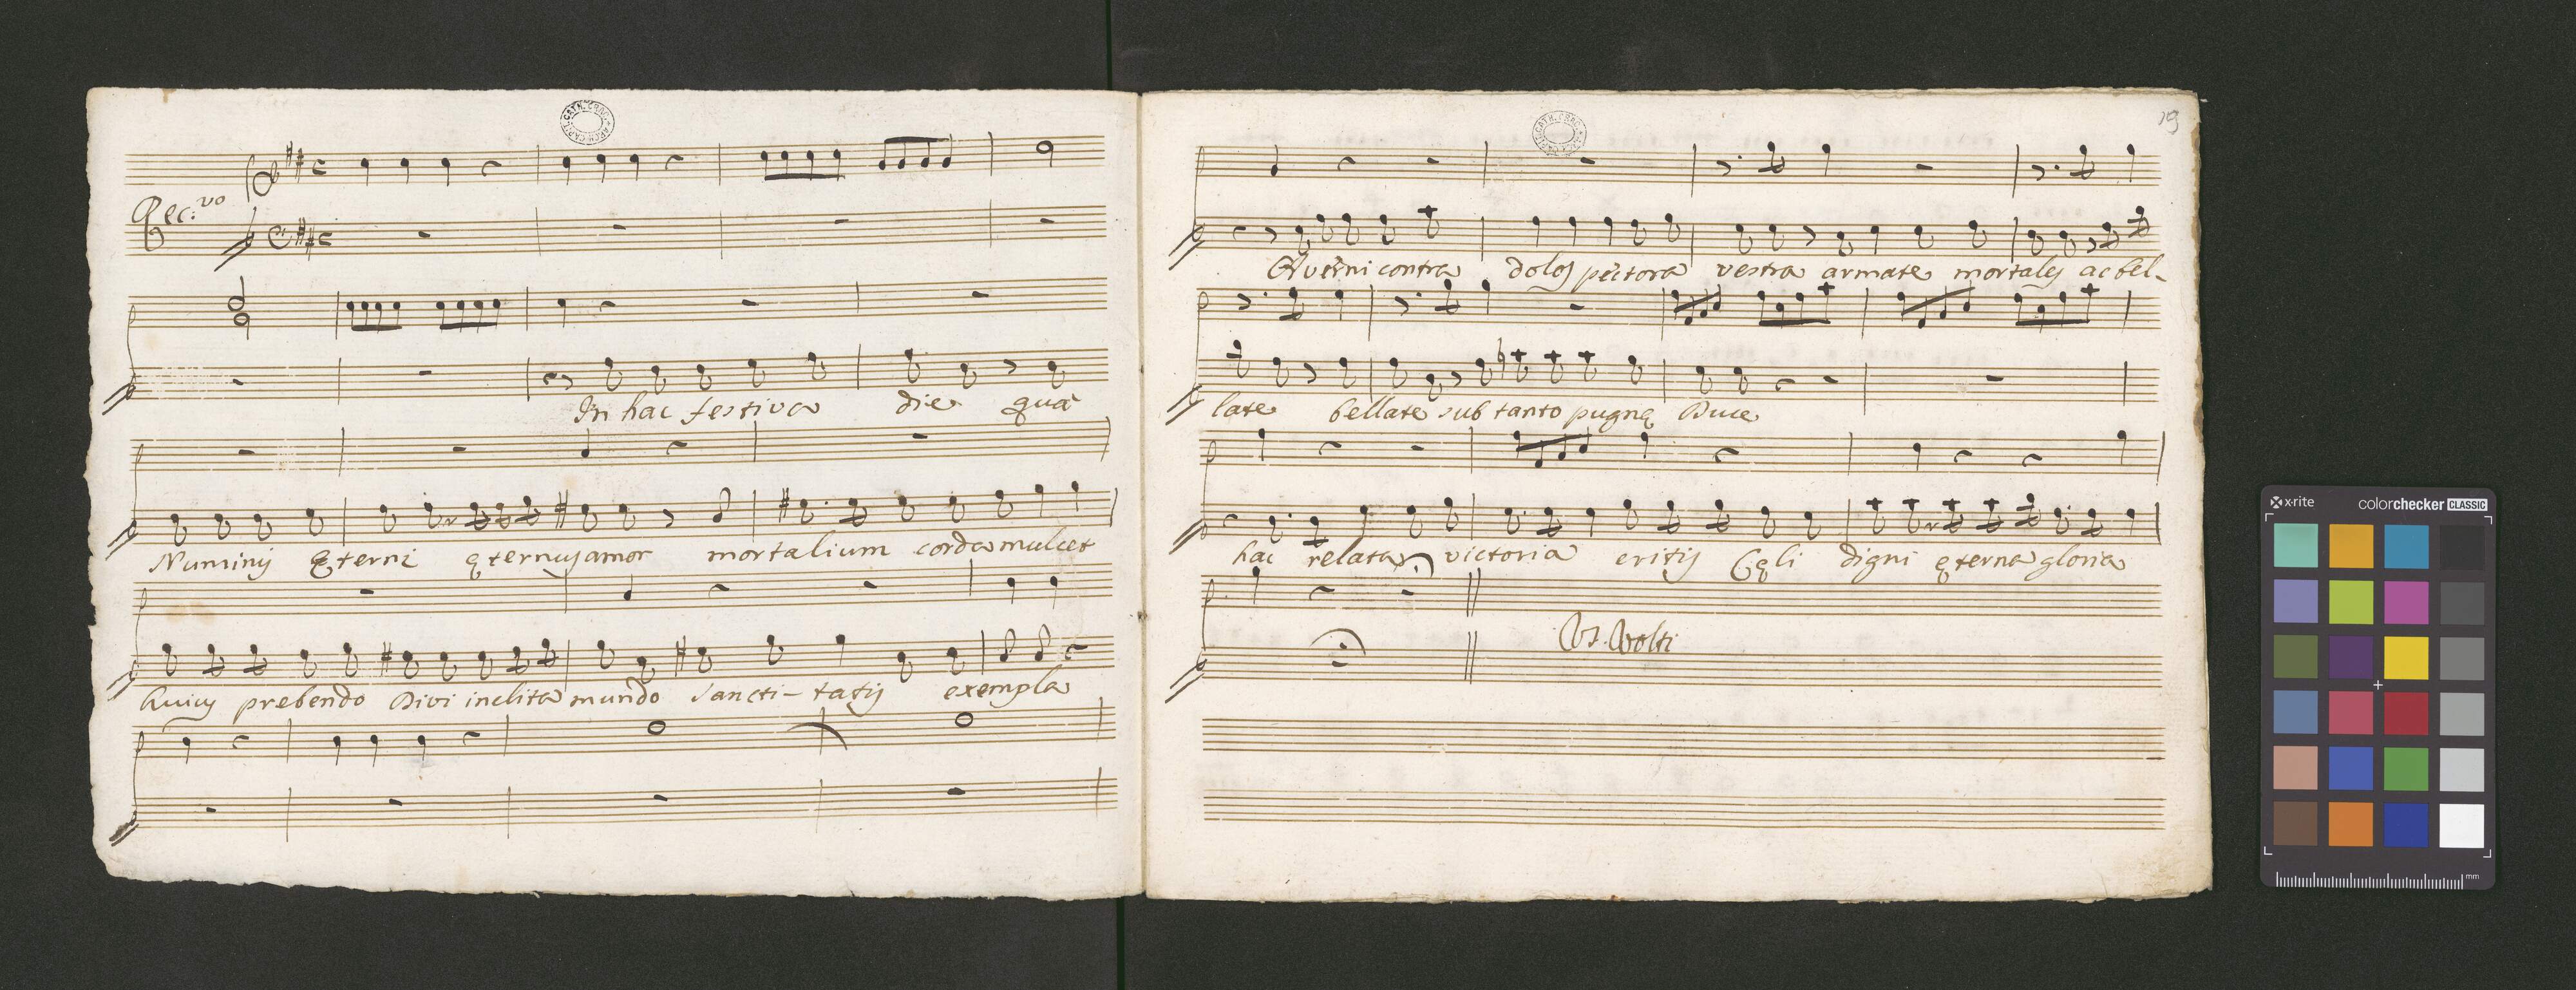 Rec:vo
In hac festiva die quâ
Numinis Ęterni ęternus amor mortalium corda mulcet
huius prebendo Divi inclita mundo Sancti-tatis exempla
19
Averni contra dolos pectora vestra armate mortales ac bel-
late bellate sub tanto pugnę Duce
hac relata victoria eritis Cęli digni ęterna gloria
Vs. Volti
x-rite
colorchecker CLASSIC
mm